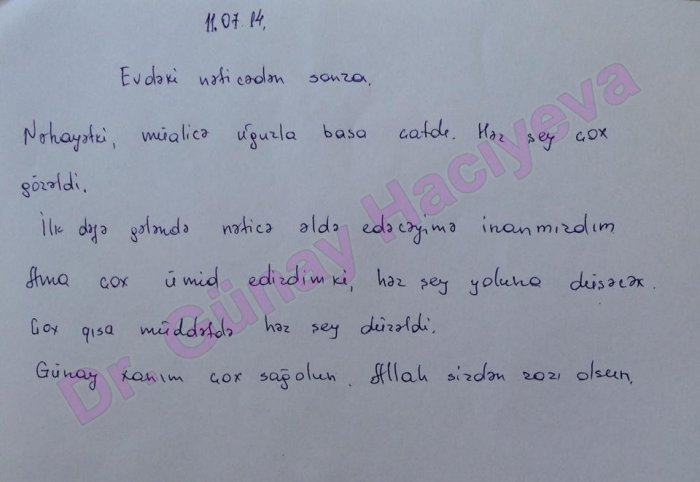 11.07.14.
Evdəki nəticədən sonra.
Nəhayətki, müalicə uğurla başa çatdı. Hər şey çox
gözəldi.
İlk dəfə gələndə nəticə əldə edəcəyimə inanmırdım
Ama çox ümid edirdimki, hər şey yoluna düşəcək.
Çox qısa müddətdə hər şey düzəldi.
Günay xanım çox sağolun. Allah sizdən razı olsun.
Dr. Günay Hacıyeva